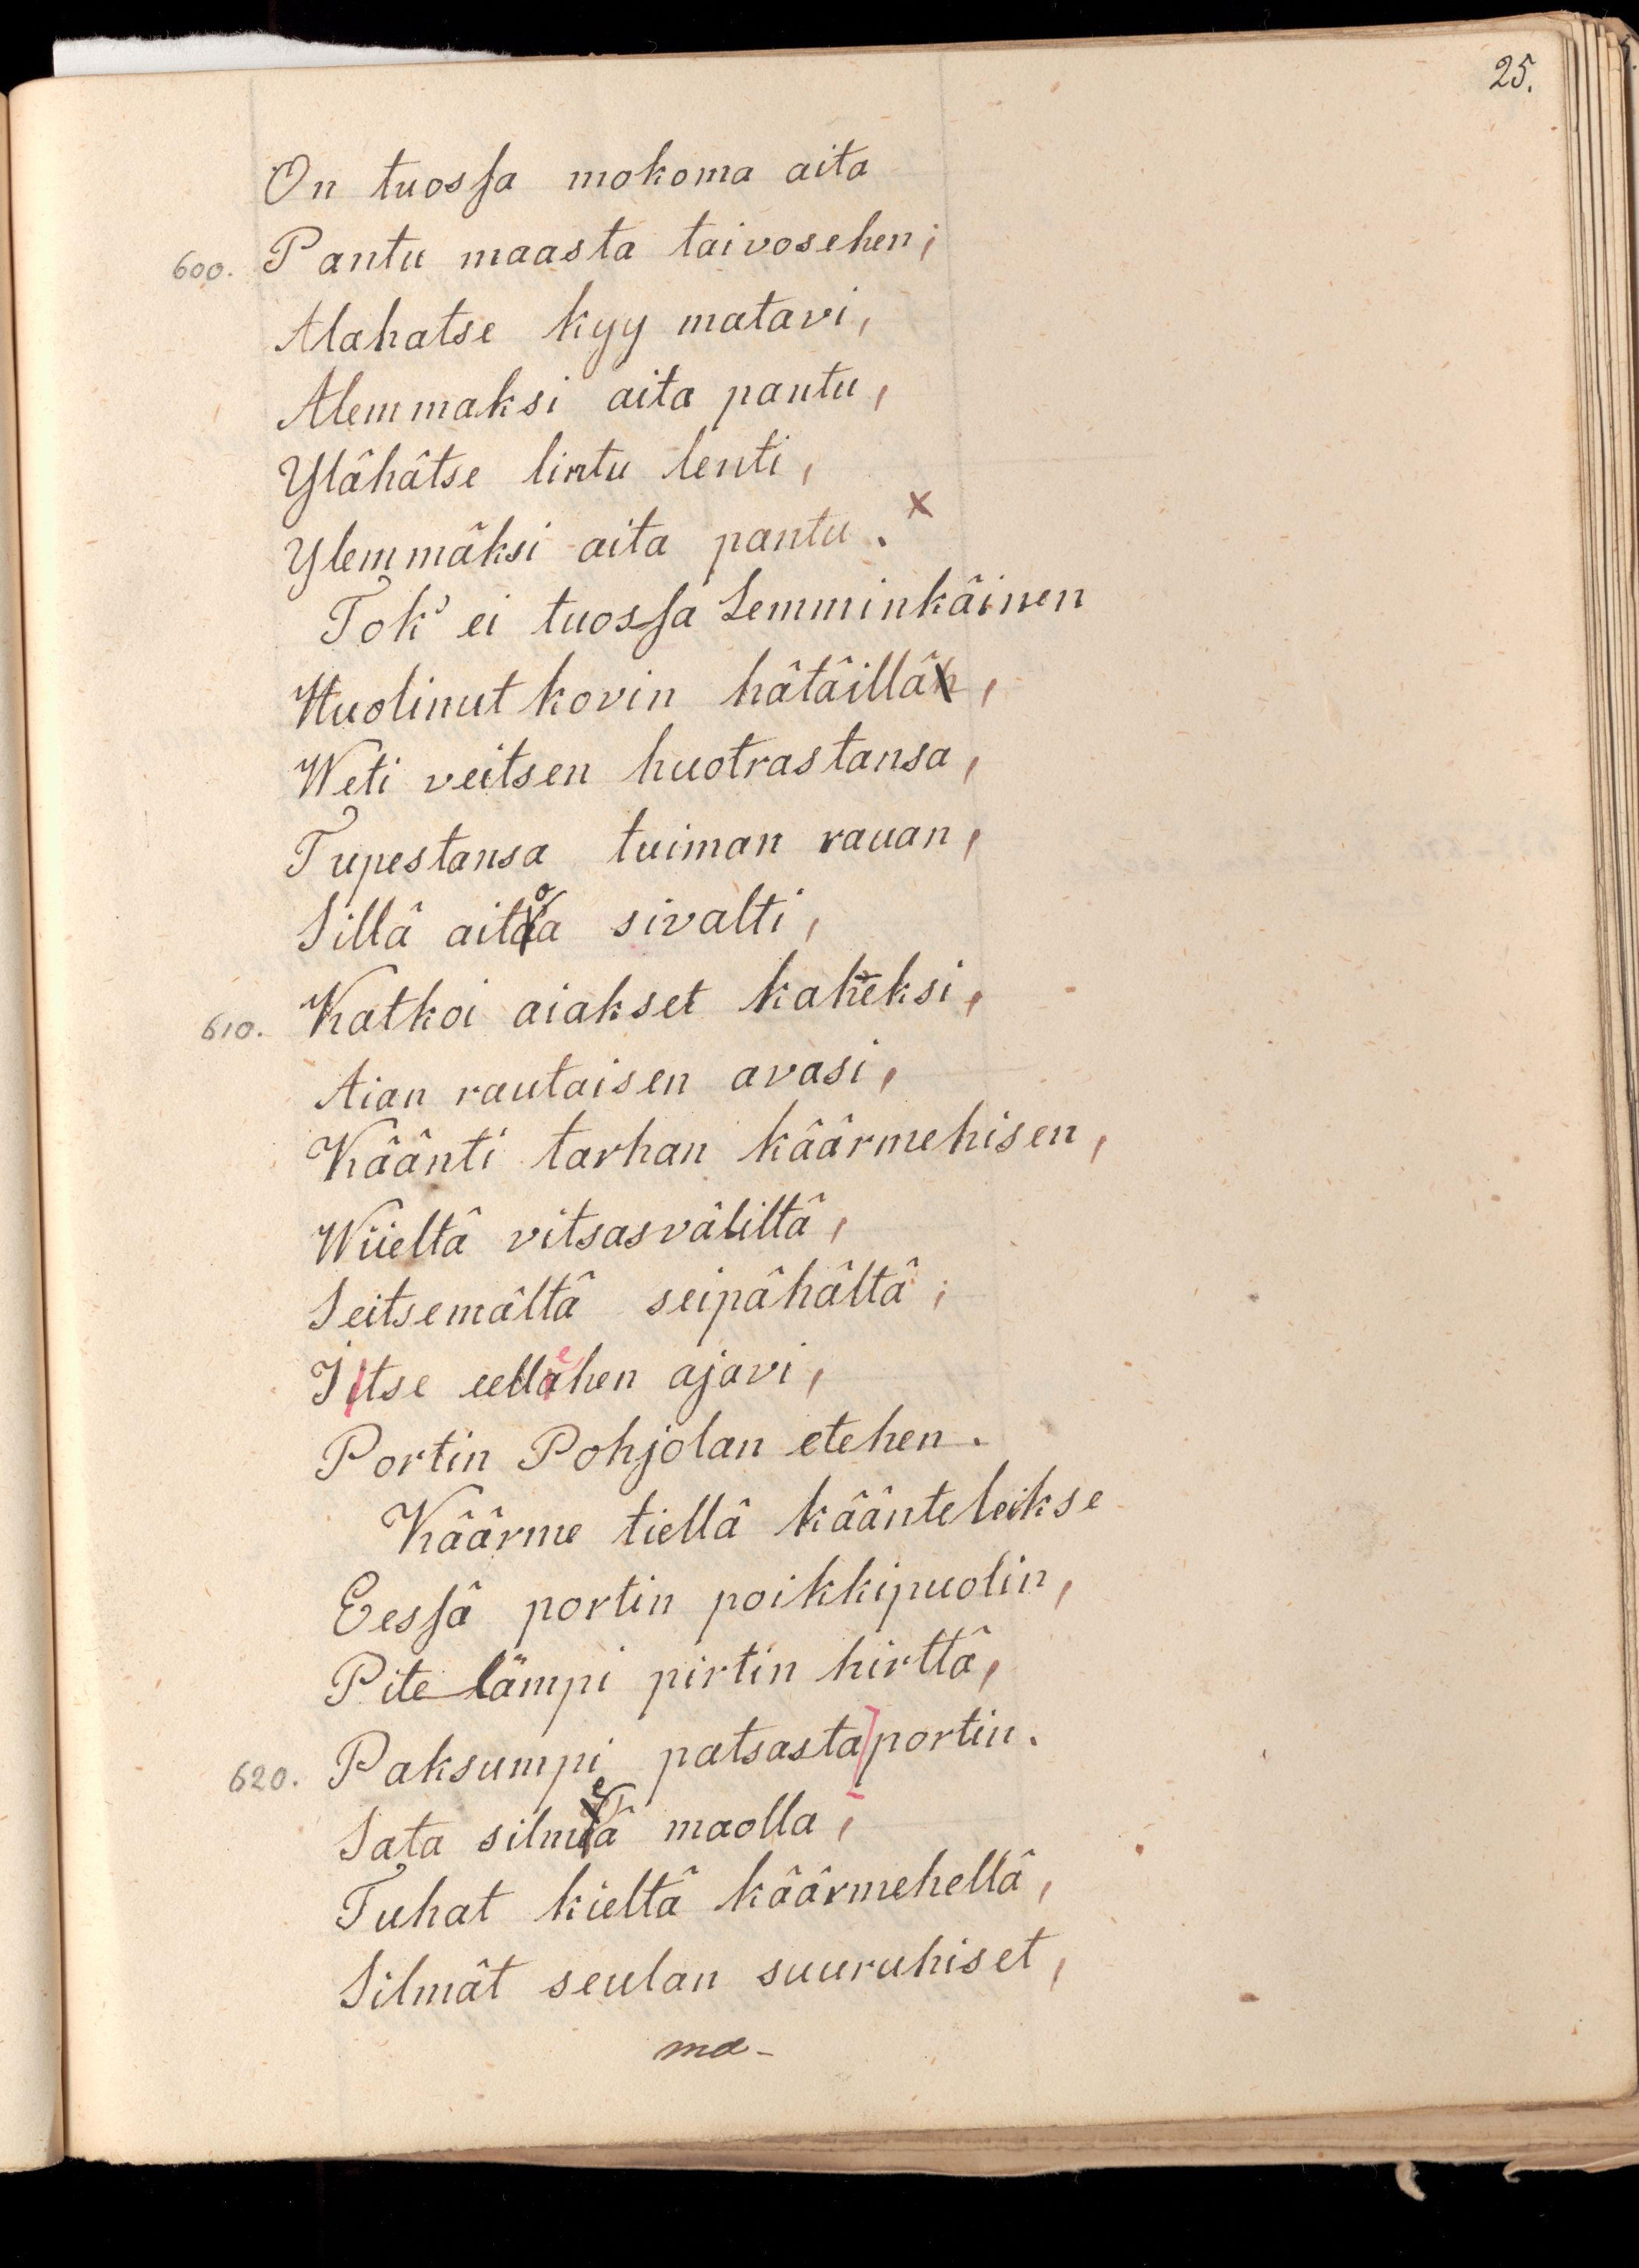 25.
On tuossa mokoma aita
600. Pantu maasta taivosehen;
Alahatse kyy matavi,
Alemmaksi aita pantu,
Ylâhâtse lintu lenti,
Ylemmâksi aita pantu. x
Tok' ei tuossa Lemminkâinen
Huolinut kovin hâtâillâ,
Weti veitsen huotrastansa,
Tupestansa tuiman rauan,
Sillâ aitoa sivalti,
610. Katkoi aiakset kaheksi,
Aian rautaisen avasi,
Kâânti tarhan kâârmehisen,
Wiieltâ vitsasvâliltâ,
Seitsemâltâ seipâhâltâ;
Itse eellehen ajavi,
Portin Pohjolan etehen.
Kâârme tiellâ kâânteleikse
Eessâ portin poikkipuolin,
Pitelämpi pirtin hirttâ,
620. Paksumpi patsasta portin.
Sata silmeâ maolla,
Tuhat kieltâ kâârmehellâ,
Silmât seulan suuruhiset,
ma-